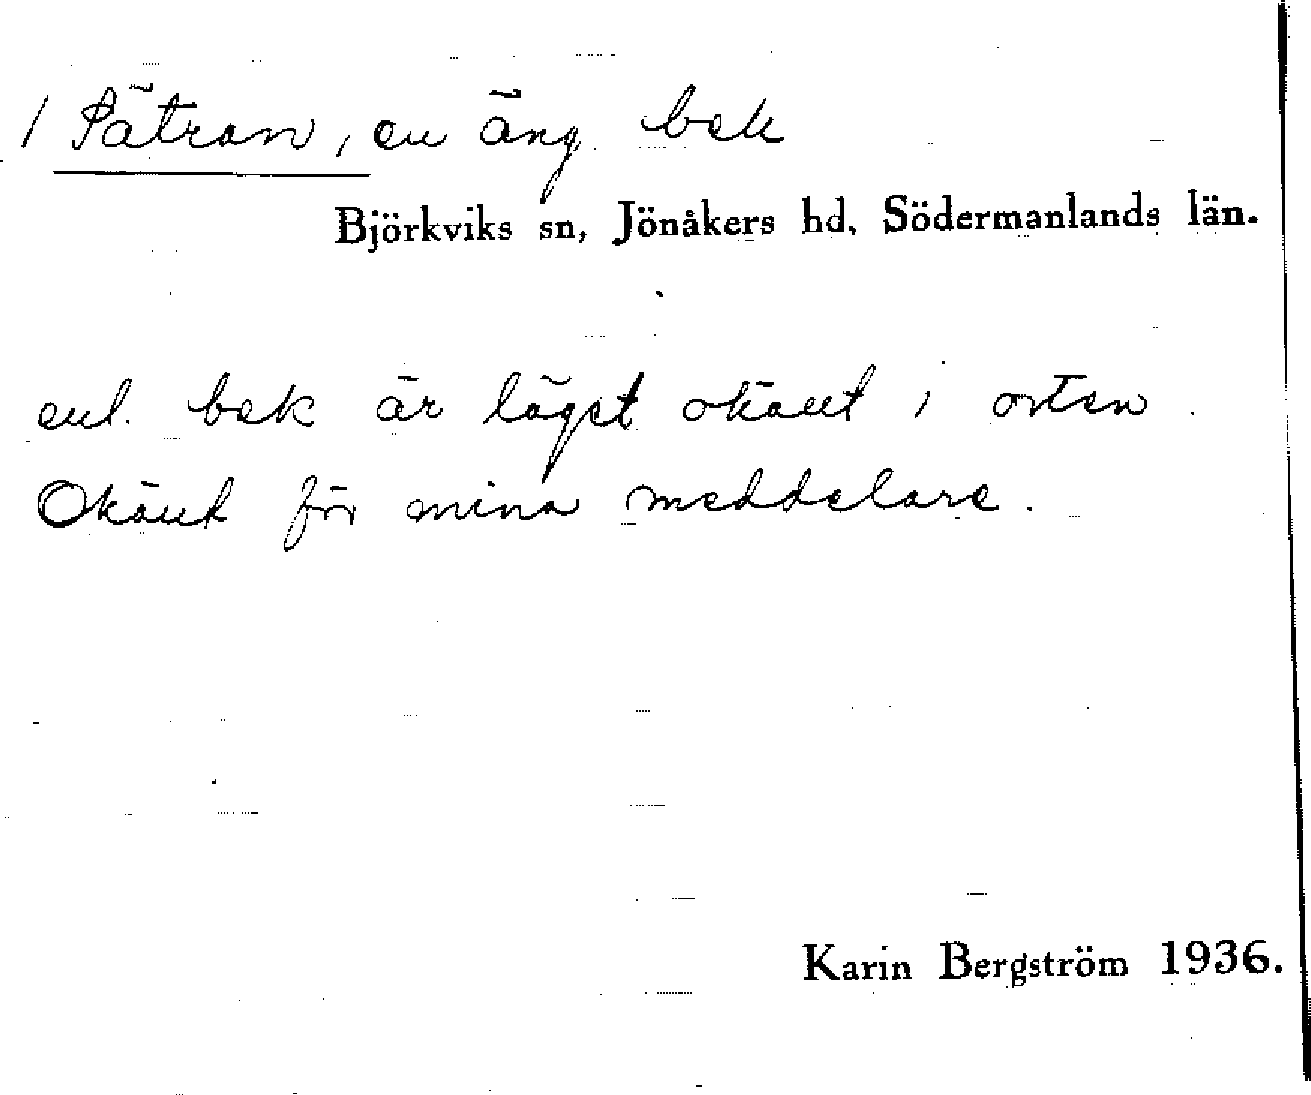 / Pätran, en äng. bek
Björkviks sn, Jönåkers hd, Södermanlands län.
enl. bek är läget okänt i orten.
Okänt för mina meddelare.
Karin Bergström 1936.